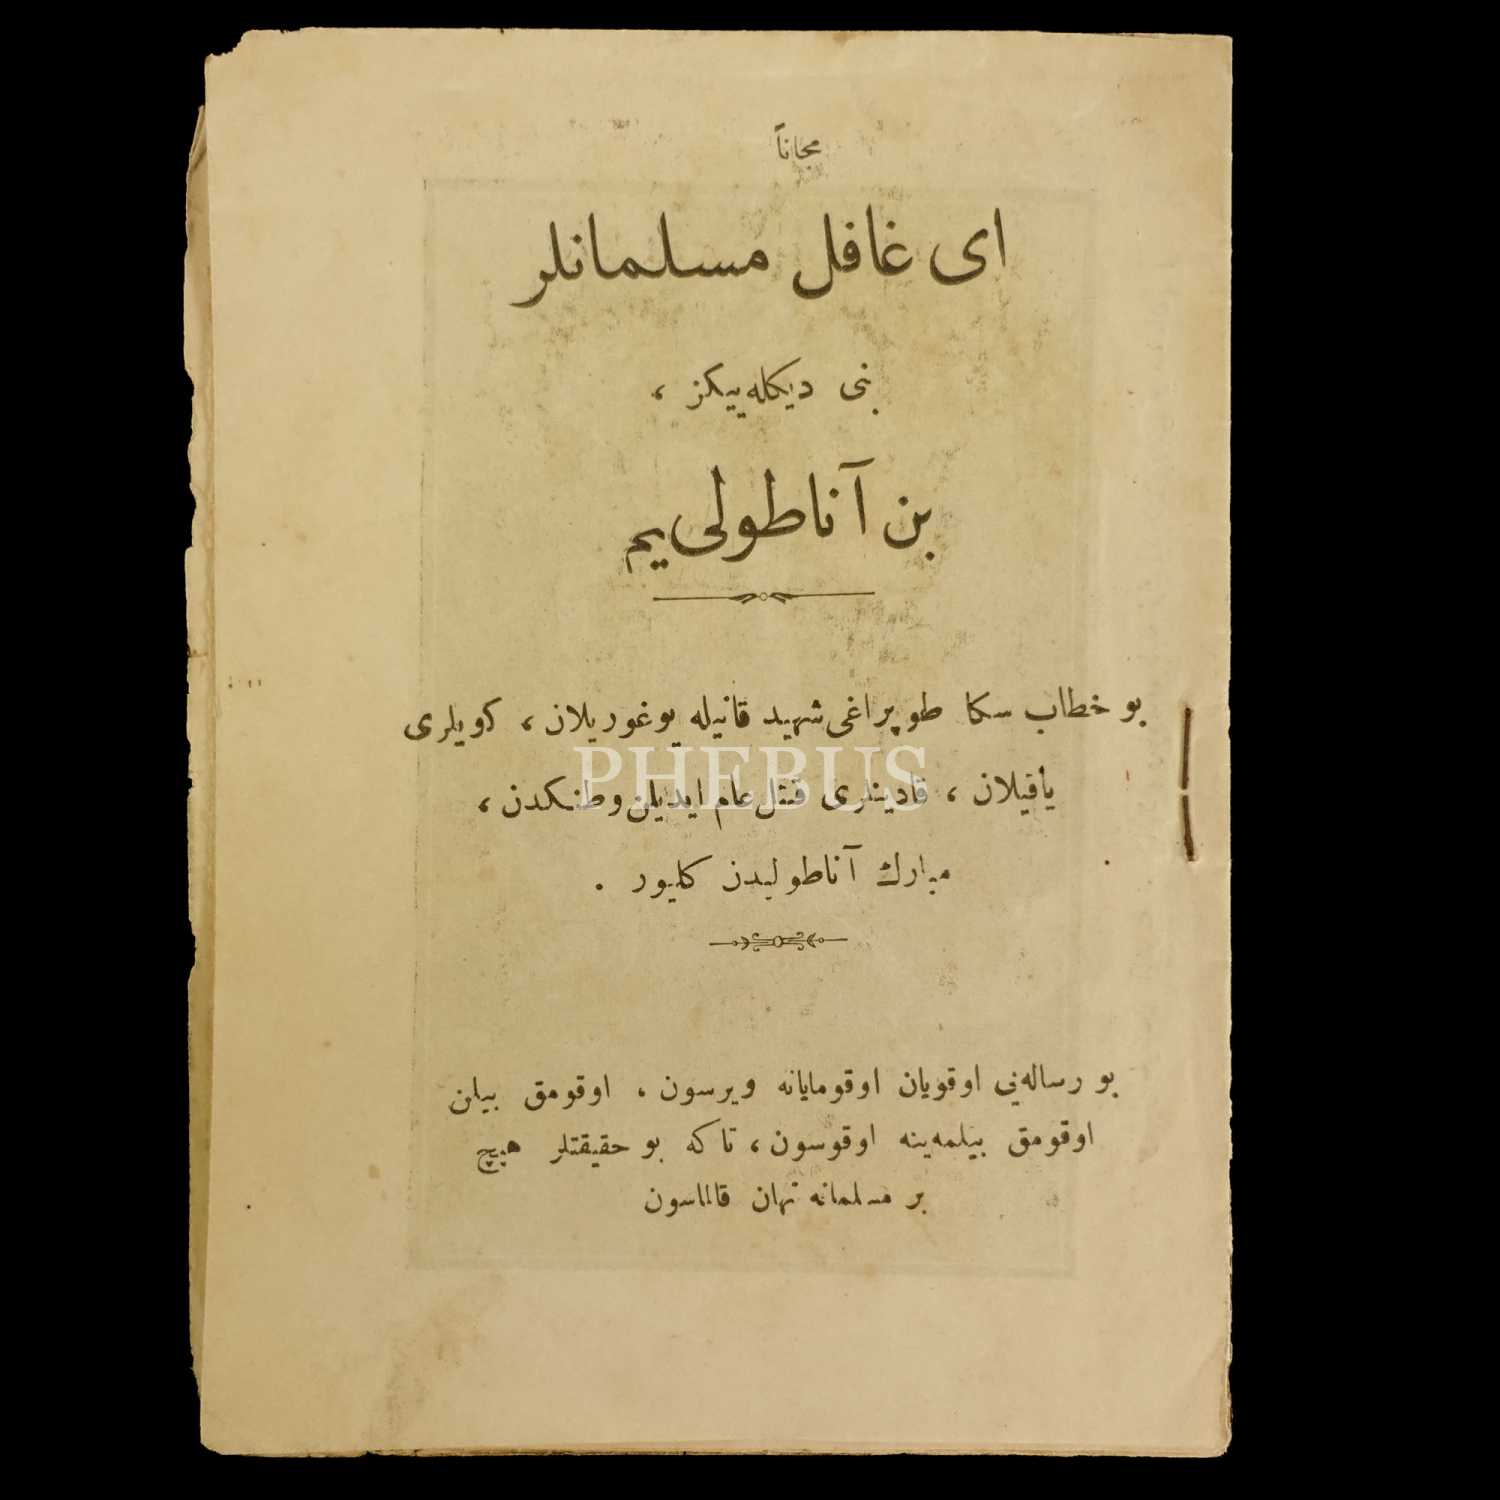 مجاناً
ای غافل مسلمانلر
بنی دیکله‌ییکز ،
بن آناطولی‌یم
بو خطاب سکا طوپراغی شهید قانیله یوغوریلان ، کویلری
یاقیلان ، قادینلری قتل عام ایدیلن وطنکدن ،
مبارك آناطولیدن کلیور .
بو رساله‌یی اوقویان اوقومایانه ویرسون ، اوقومق بیلن
اوقومق بیلمه‌ینه اوقوسون ، تا که بو حقیقتلر هیچ
بر مسلمانه نهان قالماسون
PHEBUS